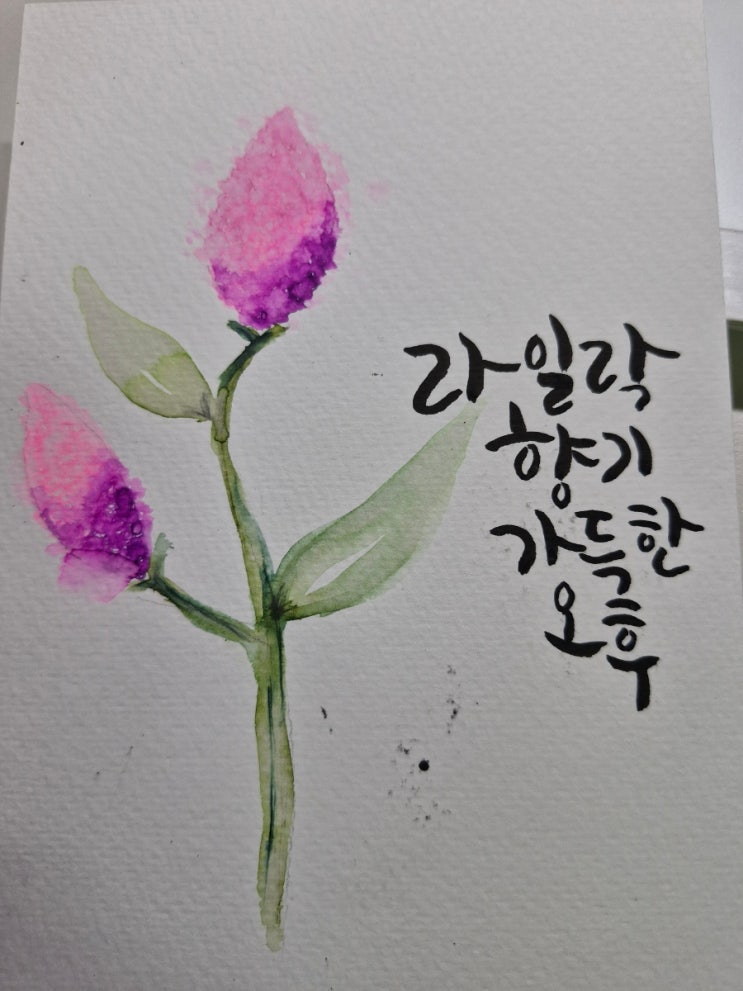 라일락
향기
가득한
오후